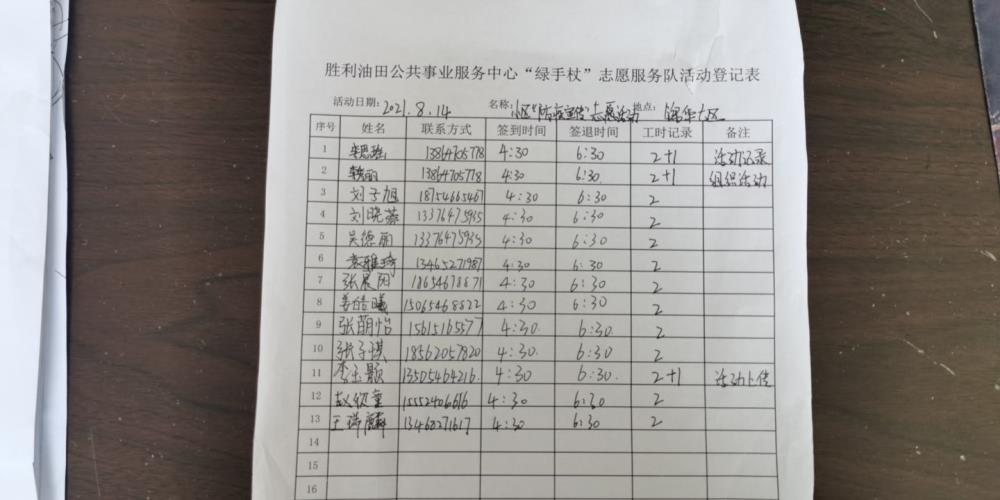 胜利油田公共事业服务中心“绿手杖”志愿服务队活动登记表
活动日期：2021.8.14 名称：小区"防疫宣传"志愿活动 地点：锦华大区
序号 姓名 联系方式 签到时间 签退时间 工时记录 备注
1 13864705778 4:30 6:30 2+1 活动记录
2 13864705778 4:30 6:30 2+1 组织活动
3 刘子旭 18754665467 4:30 6:30 2
4 刘晓蓉 13376475935 4:30 6:30 2
5 吴德丽 13376475935 4:30 6:30 2
6 袁雅琦 13465271987 4:30 6:30 2
7 张晨阳 18654678871 4:30 6:30 2
8 姜皓曦 15065468822 4:30 6:30 2
9 张萌怡 15615165577 4:30. 6:30 2
10 张子祺 18562057820 4:30. 6:30. 2
11 李玉颢 13505464216. 4:30 6:30. 2+1 活动上传
12 赵欣童 15552406616 4:30 6:30 2
13 王瑞麟 13460271617 4:30 6:30 2
14
15
16